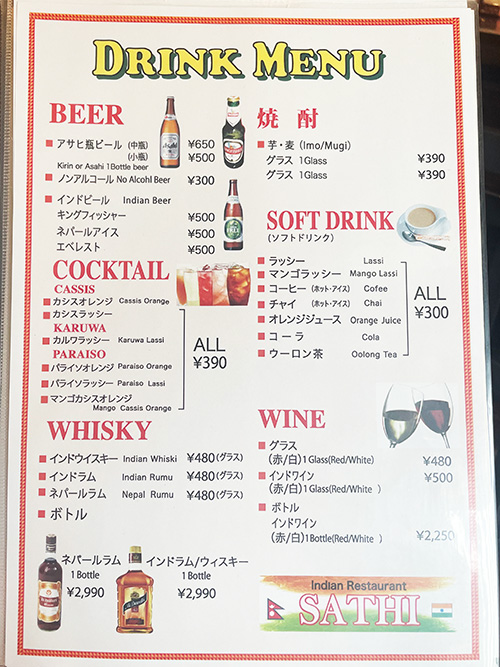 DRINK MENU
BEER
アサヒ瓶ビール (中瓶) ¥650
(小瓶) ¥500
Kirin or Asahi 1Bottle beer
ノンアルコール No Alcohl Beer ¥300
インドビール Indian Beer
キングフィッシャー ¥500
ネパールアイス ¥500
エベレスト ¥500
COCKTAIL
CASSIS
カシスオレンジ Cassis Orange
カシスラッシー
KARUWA
カルワラッシー Karuwa Lassi
PARAISO
パライソオレンジ Paraiso Orange
パライソラッシー Paraiso Lassi
マンゴカシスオレンジ
Mango Cassis Orange
ALL
¥390
WHISKY
インドウイスキー Indian Whiski ¥480(グラス)
インドラム Indian Rumu ¥480(グラス)
ネパールラム Nepal Rumu ¥480(グラス)
ボトル
ネパールラム
1Bottle
¥2,990
インドラム/ウィスキー
1Bottle
¥2,990
焼酎
芋・麦 (Imo/Mugi)
グラス 1Glass ¥390
グラス 1Glass ¥390
SOFT DRINK
(ソフトドリンク)
ラッシー Lassi
マンゴラッシー Mango Lassi
コーヒー (ホット・アイス) Cofee
チャイ (ホット・アイス) Chai
オレンジジュース Orange Juice
コーラ Cola
ウーロン茶 Oolong Tea
ALL
¥300
WINE
グラス
(赤/白)1Glass(Red/White) ¥480
インドワイン ¥500
(赤/白)1Glass(Red/White )
ボトル
インドワイン
(赤/白)1Bottle(Red/White ) ¥2,250
Indian Restaurant
SATHI